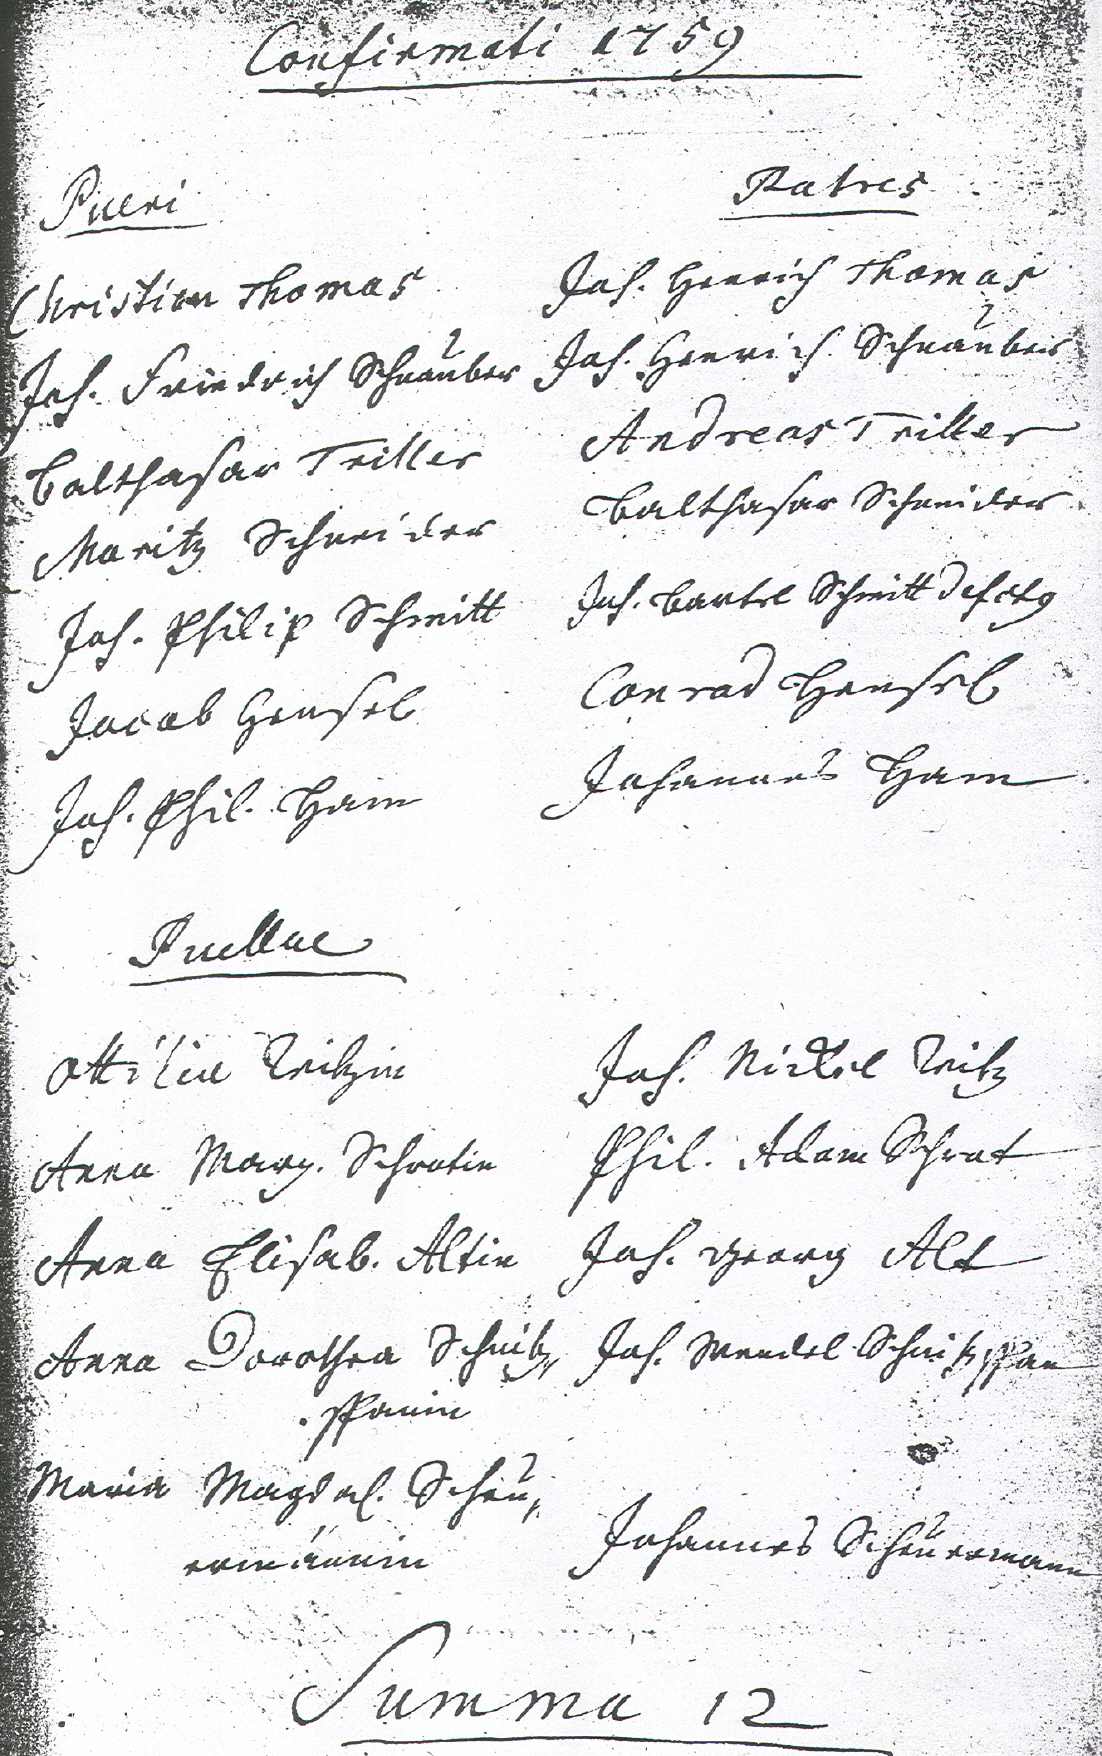 Confirmati 1759
Pueri Patres
Christian Thomas Joh. Henrich Thomas
Joh. Friedrich Schnauber Joh. Henrich Schnauber
Balthasar Triller Andreas Triller
Moritz Schneider Balthasar Schneider
Joh. Philip Schmitt Joh. Bartel Schmitt
Jacob Hensel Conrad Hensel
Joh. Phil. Ham Johannes Ham
Puellae
Ottilia Reitzin Joh. Nickel Reitz
Anna Marg. Schrotin Phil. Adam Schrot
Anna Elisab. Altin Joh. Georg Alt
Anna Dorothea Schnitz, Joh. Wendel Schnitzspan
spanin
Maria Magdal. Scheu,
ermännin Johannes Scheuermann
Summa 12